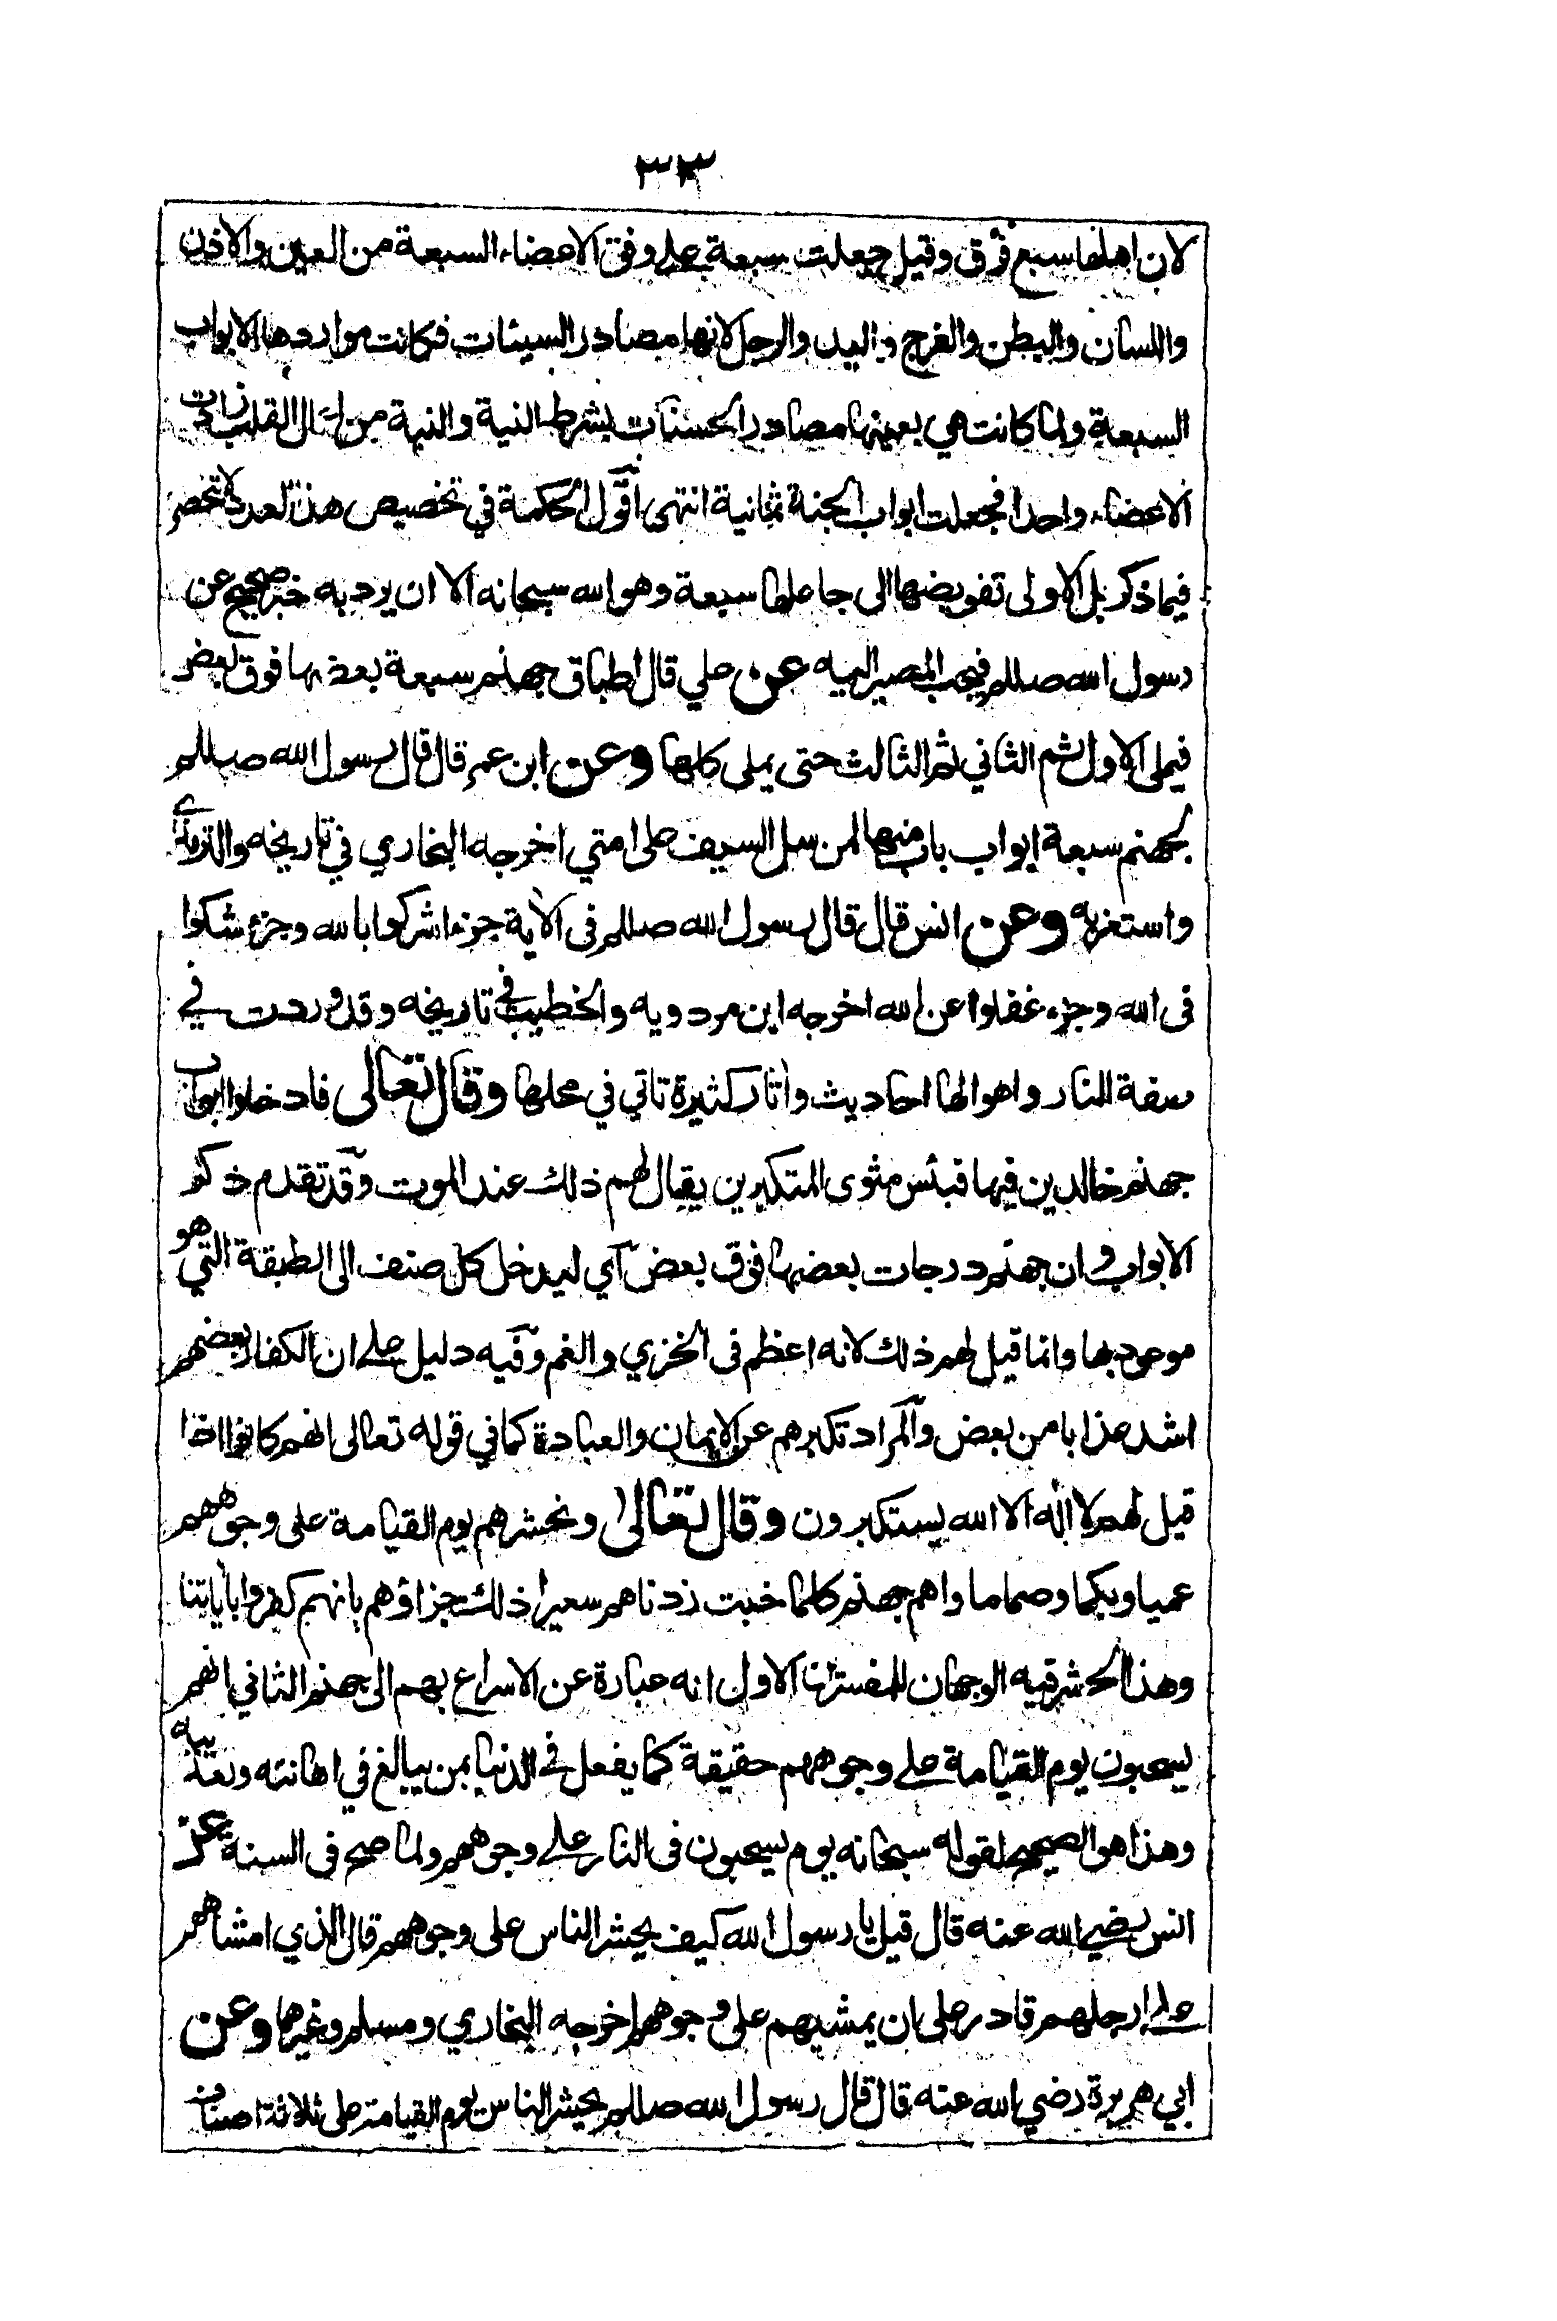 ٣٣
لان اهلها سبع فرق وقيل جعلت سبعة على وفق الاعضاء السبعة من العين والاذن
واللسان والبطن والفرج واليد والرجل لانها مصادر السيئات فكانت مواردها الابواب
السبعة ولما كانت هي بعينها مصادر الحسنات بشرط النية والنية من اعمال القلب زادت
الاعضاء واحدا فجعلت ابواب الجنة ثمانية انتهى أقول الحكمة في تخصيص هذا العدد لا تنحصر
فيما ذكر بل الاولى تفويضها الى جاعلها سبعة وهو الله سبحانه الا ان يرد به خبر صحيح عن
رسول الله صللم فيجب المصير اليه عن علي قال اطباق جهنم سبعة بعضها فوق بعض
فيملى الاول ثم الثاني ثم الثالث حتى يملى كلها وعن ابن عمر قال قال رسول الله صللم
لجهنم سبعة ابواب باب منها لمن سل السيف على امتي اخرجه البخاري في تاريخه والترمذي
واستغربه وعن انس قال قال رسول الله صللم فى الآية جزء اشركوا بالله وجزء شكوا
فى الله وجزء غفلوا عن الله اخرجه ابن مردويه والخطيب في تاريخه وقد وردت في
صفة النار واهوالها احاديث وآثار كثيرة تاتي في محلها وقال تعالى فادخلوا ابواب
جهنم خالدين فيها فبئس مثوى المتكبرين يقال لهم ذلك عند الموت وقد تقدم ذكر
الابواب وان جهنم درجات بعضها فوق بعض آي ليدخل كل صنف الى الطبقة التي هو
موعود بها وانما قيل لهم ذلك لانه اعظم فى الخزي والغم وفيه دليل على ان الكفار بعضهم
اشد عذابا من بعض والمراد تكبرهم عن الايمان والعبادة كما في قوله تعالى انهم كانوا اذا
قيل لهم لا اله الا الله يستكبرون وقال تعالى ونحشرهم يوم القيامة على وجوههم
عميا وبكما وصما ماواهم جهنم كلما خبت زدناهم سعيرا ذلك جزاؤهم بانهم كفروا بآياتنا
وهذا الحشر فيه الوجهان للمفسرين الاول انه عبارة عن الاسراع بهم الى جهنم الثاني انهم
يسحبون يوم القيامة على وجوههم حقيقة كما يفعل في الدنيا بمن يبالغ في اهانته وتعذيبه
وهذا هو الصحيح لقوله سبحانه يوم يسحبون فى النار على وجوههم ولما صح فى السنة عن
انس رضي الله عنه قال قيل يا رسول الله كيف يحشر الناس على وجوههم قال الذي امشاهم
على ارجلهم قادر على ان يمشيهم على وجوههم اخرجه البخاري ومسلم وغيرهما وعن
ابي هريرة رضي الله عنه قال قال رسول الله صللم يحشر الناس يوم القيامة على ثلاثة اصناف